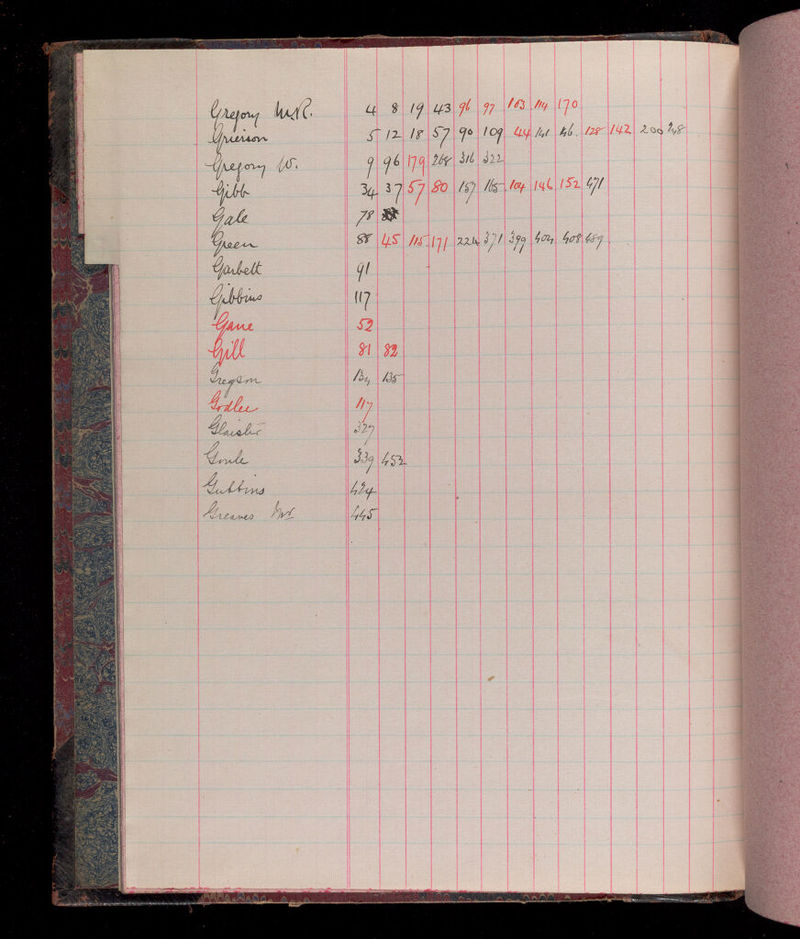 Gregory W.R. 4 8 19 43 96 97 103 114 170
Grierson 5 12 18 57 90 109 44 141 46. 128 142 200 248
Gregory W. 9 96 179 268 316 322
Gibb 34 37 57 80 157 165 104 146 152 471
Gale 78
Green 88 45 115 171 224 371 399 404 408 489
Garbett 91
Gibbins 117
Gane 52
Gill 81 82
Gregson 134 135
Godlee 117
Glaister 327
339 452
Gubbins 424
Greaves 445